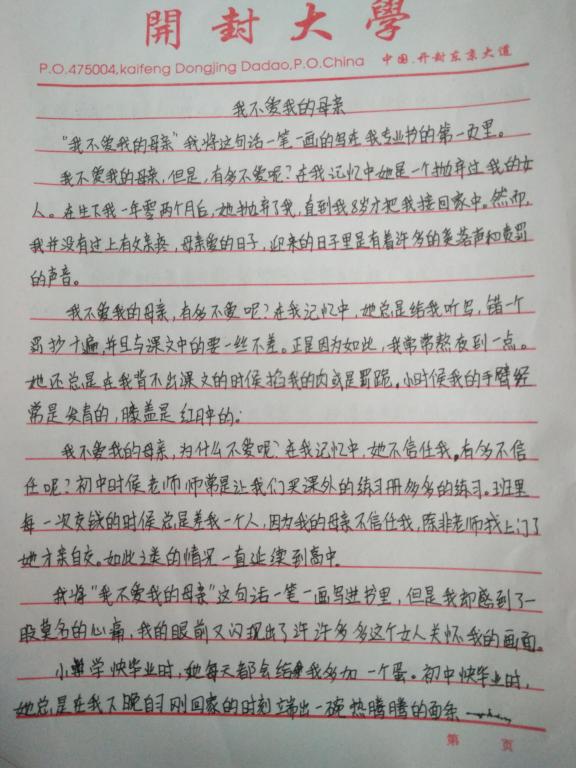 開封大學
P.O.475004,kaifeng Dongjing Dadao,P.O.China 中国.开封东京大道
我不爱我的母亲
“我不爱我的母亲”我将这句话一笔一画的写在我专业书的第一页里。
我不爱我的母亲,但是,有多不爱呢?在我记忆中她是一个抛弃过我的女
人。在生下我一年零两个月后,她抛弃了我,直到我8岁才把我接回家中。然而,
我并没有过上有父亲疼,母亲爱的日子,迎来的日子里是有着许多的责骂声和责罚
的声音。
我不爱我的母亲,有多不爱呢?在我记忆中,她总是给我听写,错一个
罚抄十遍,并且与课文中的要一丝不差。正是因为如此,我常常熬夜到一点。
她还总是在我背不出课文的时候掐我的肉或是罚跪。小时候我的手臂经
常是发青的,膝盖是红肿的;
我不爱我的母亲,为什么不爱呢?在我记忆中,她不信任我。有多不信
任呢?初中时候老师师常是让我们买课外的练习册多多的练习。班里
每一次交钱的时候总是差我一个人,因为我的母亲不信任我,除非老师找上门了
她才亲自交。如此之类的情况一直延续到高中。
我将“我不爱我的母亲”这句话一笔一画写进书里,但是我却感到了一
股莫名的心痛,我的眼前又闪现出了许许多多这个女人关怀我的画面。
小学快毕业时,她每天都会给我多加一个蛋。初中快毕业时,
她总是在我下晚自习刚回家的时刻端出一碗热腾腾的面条
第 页